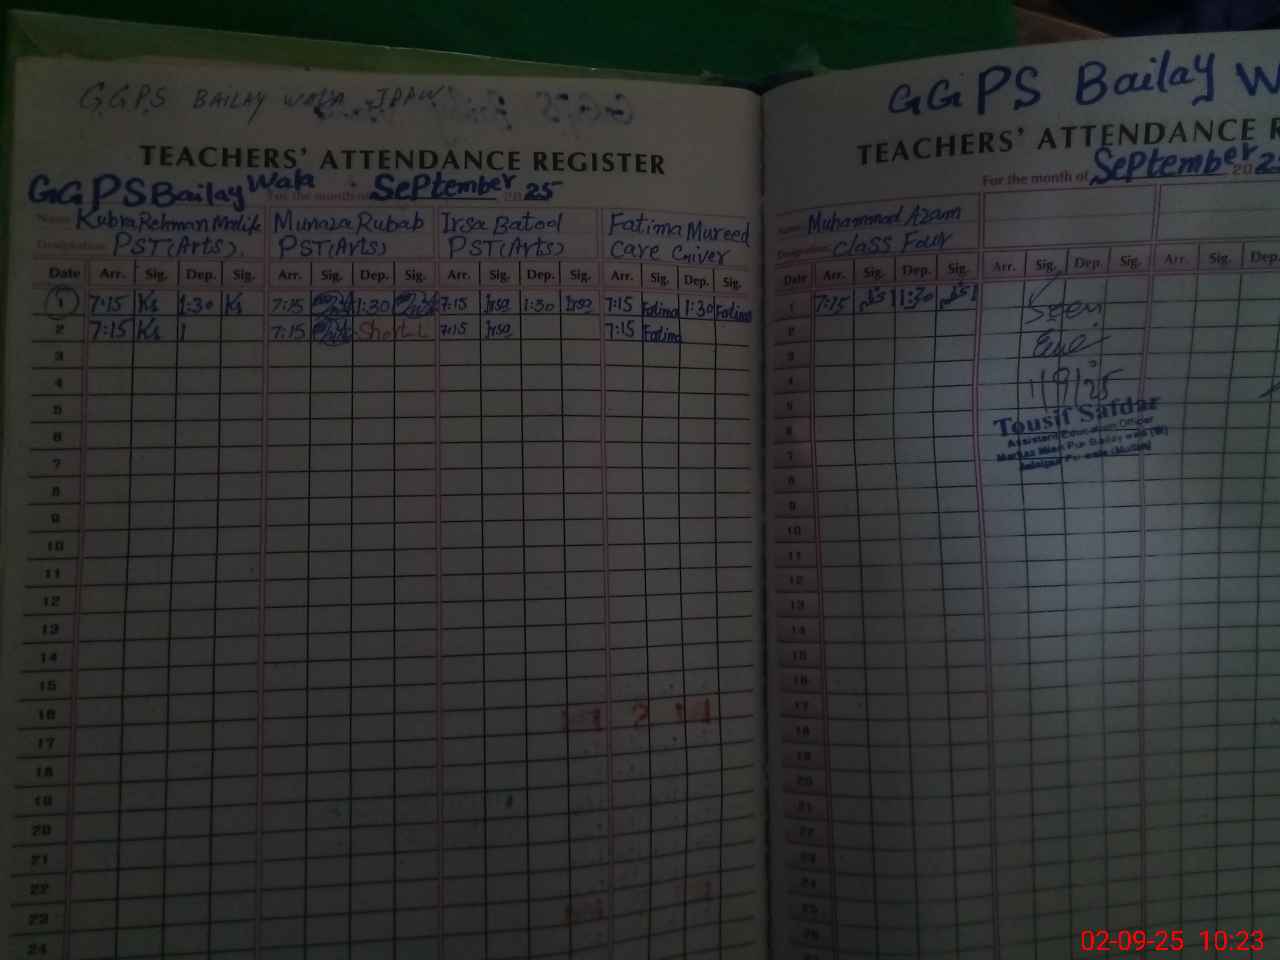 GGPS BAILAY WALA
TEACHERS' ATTENDANCE REGISTER
GGPS Bailay Wala For the month of September 20 25
Name Kubra Rehman Malik Munaza Rubab Irsa Batool Fatima Mureed
Designation PST(Arts). PST(Arts) PST(Arts) Care Giver
Date Arr. Sig. Dep. Sig. Arr. Sig. Dep. Sig. Arr. Sig. Dep. Sig. Arr. Sig. Dep. Sig.
1 7:15 Ks 1:30 Ks 7:15 1:30 7:15 Irsa 1:30 Irsa 7:15 Fatima 1:30 Fatima
2 7:15 Ks 7:15 Short L 7:15 Irsa 7:15 Fatima
3
4
5
6
7
8
9
10
11
12
13
14
15
16
17
18
19
20
21
22
23
24
GGPS Bailay W
TEACHERS' ATTENDANCE R
For the month of September 20 2
Name Muhammad Azam
Designation Class Four
Date Arr. Sig. Dep. Sig. Arr. Sig. Dep. Sig. Arr. Sig. Dep.
1 7:15 1:30
2 Seen
3
4 1/9/25
5
6 Tousif Safdar
Assistant Education Officer
7
8
9
10
11
12
13
14
15
16
17
18
19
20
21
22
23
24
25
26
02-09-25 10:23